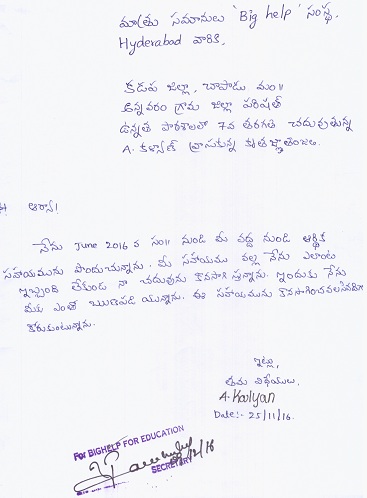 మాతృ సమానులు 'Big help' సంస్థ,
Hyderabad వారికి,
కడప జిల్లా, చాపాడు మం॥
అన్నవరం గ్రామ జిల్లా పరిషత్
ఉన్నత పాఠశాలలో 7వ తరగతి చదువుతున్న
A. కళ్యాణ్ వ్రాసుకున్న కృతజ్ఞతాంజలి.
ఆర్యా!
నేను June 2016 వ సం॥ నుండి మీ వద్ద నుండి ఆర్థిక
సహాయమును పొందుచున్నాను. మీ సహాయము వల్ల నేను ఎలాంటి
ఇబ్బంది లేకుండ నా చదువును కొనసాగిస్తున్నాను. ఇందుకు నేను
మీకు ఎంతో ఋణపడి యున్నాను. ఈ సహాయమును కొనసాగించవలసినదిగా
కోరుకుంటున్నాను.
ఇట్లు,
తమ విధేయులు.
A. Kalyan
Date:- 25/11/16.
For BIGHELP FOR EDUCATION
SECRETARY